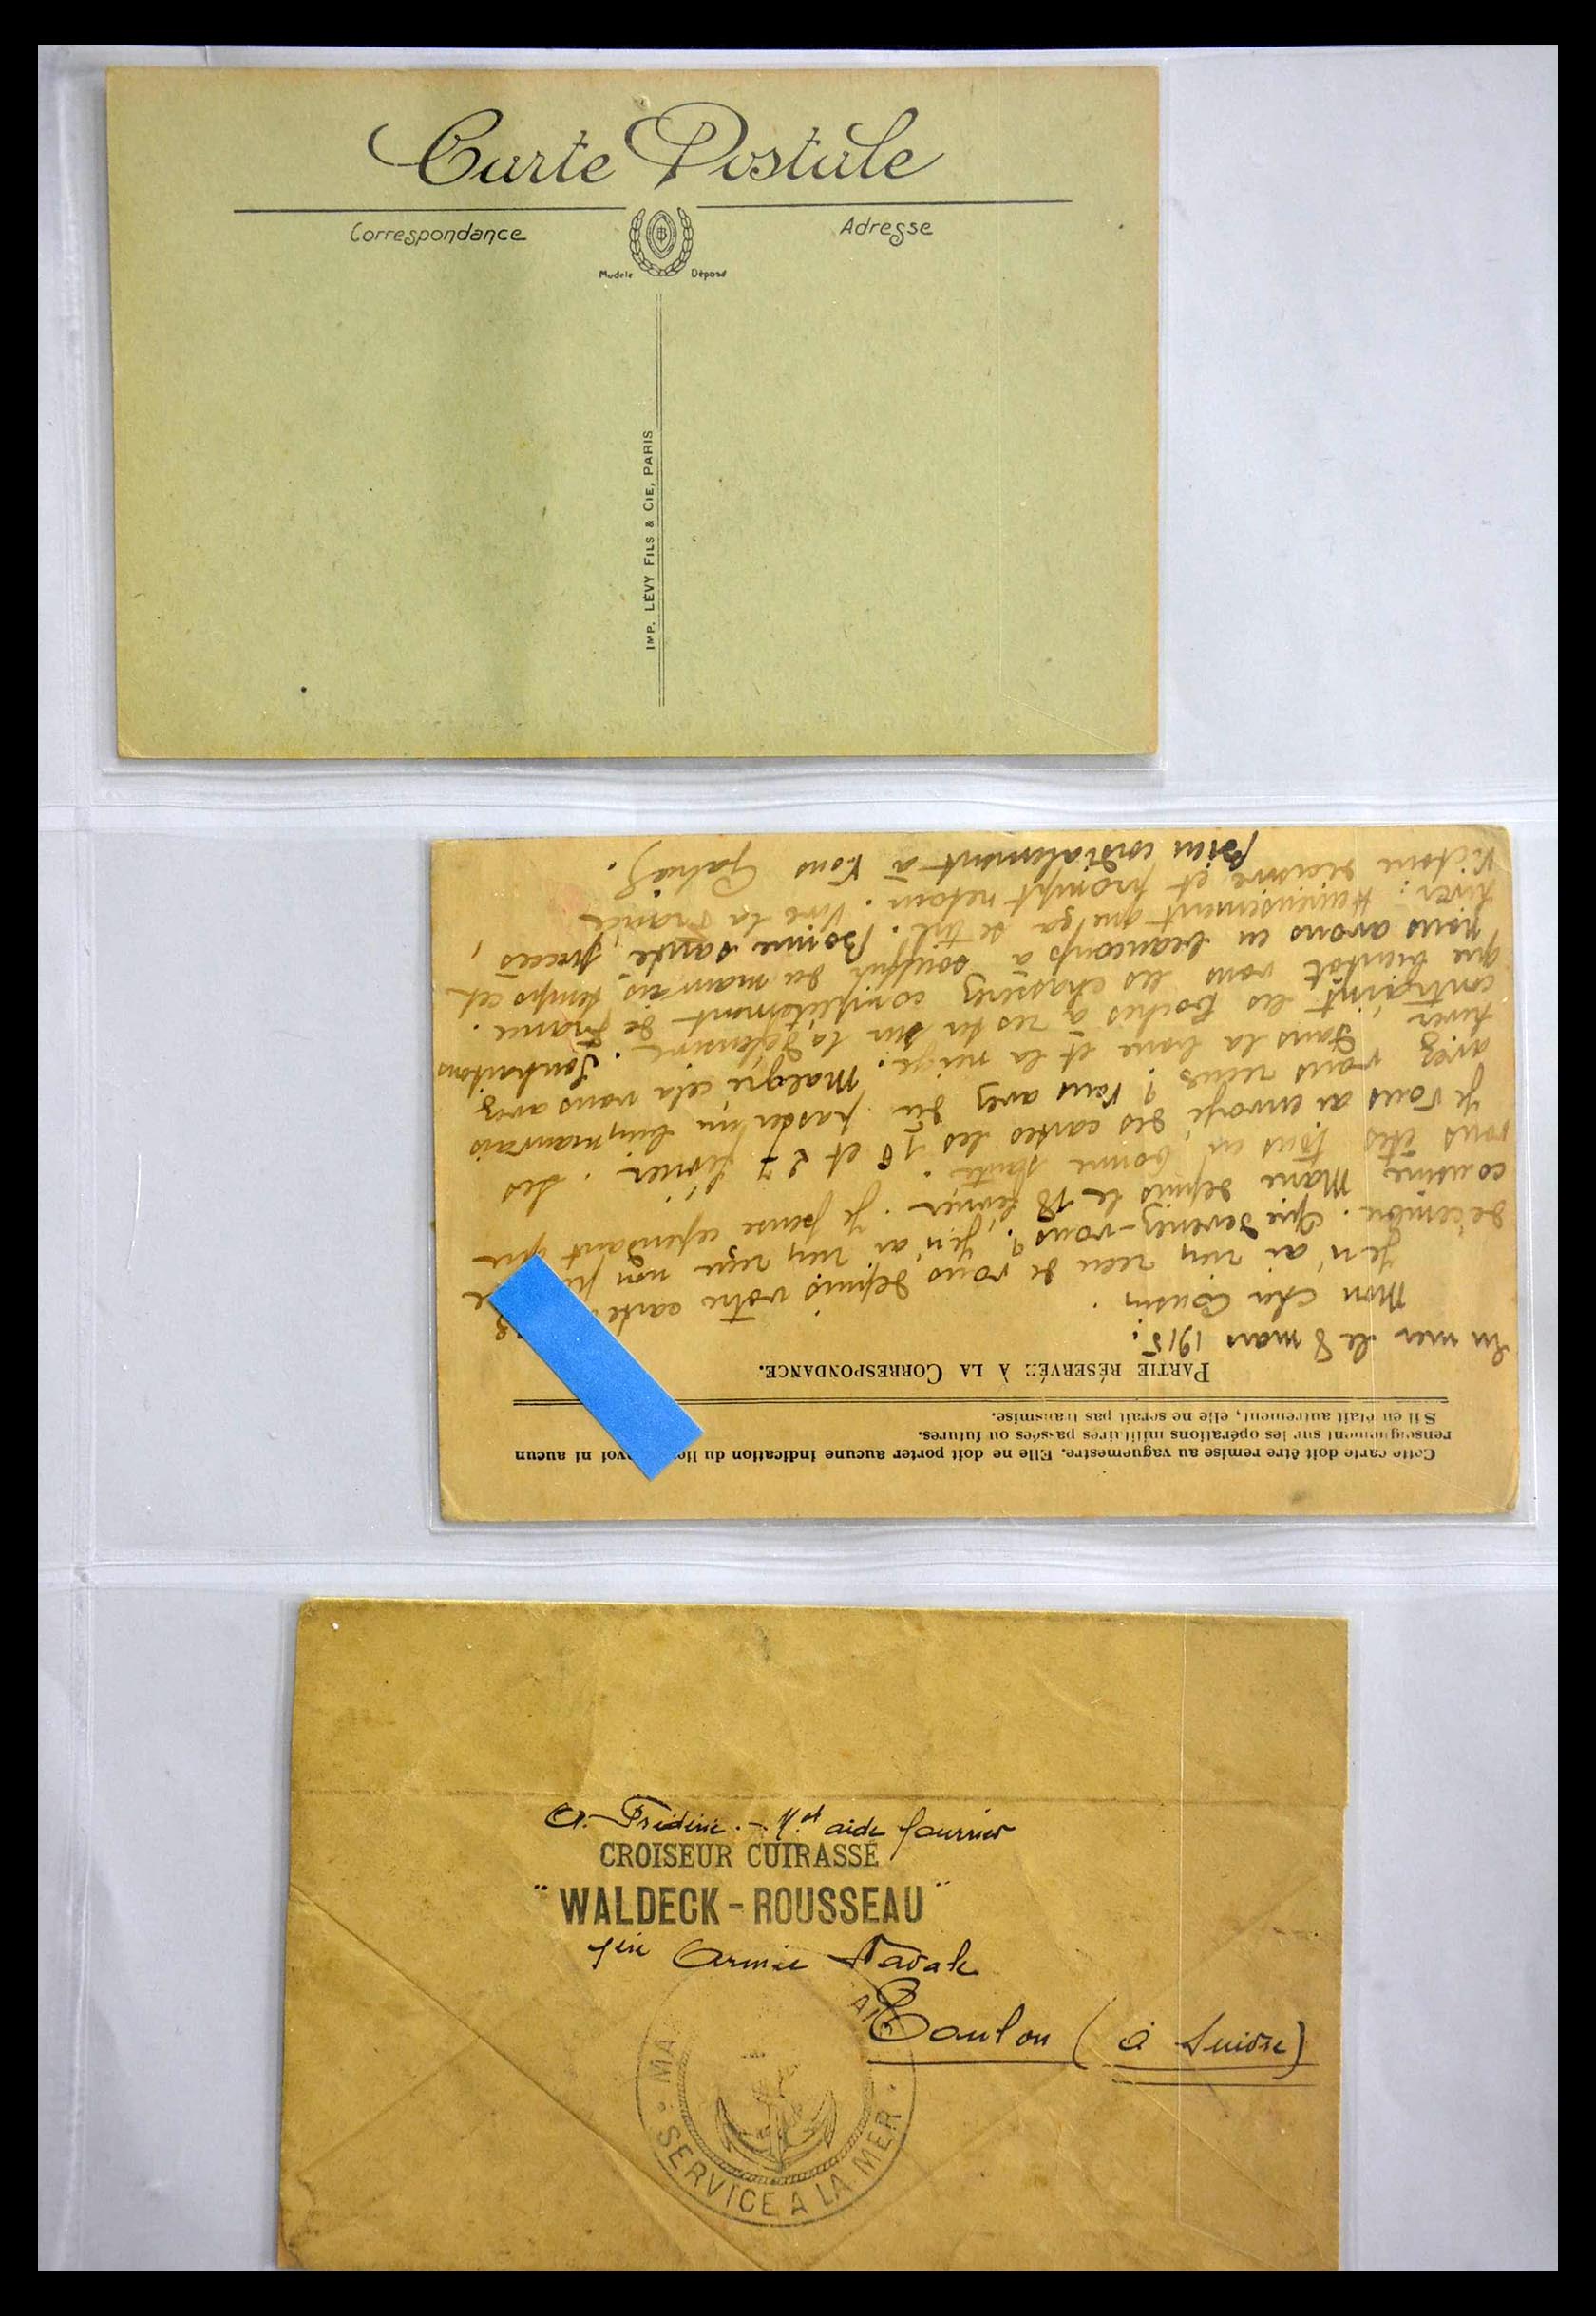 Carte Postale
Correspondance
Adresse
Modèle Déposé
IMP. LÉVY FILS & CIE, PARIS
Cette carte doit être remise au vaguemestre. Elle ne doit porter aucune indication du ni aucun
renseignement sur les opérations militaires passées ou futures.
S'il en était autrement, elle ne serait pas transmise.
PARTIE RÉSERVÉE À LA CORRESPONDANCE.
En mer le 8 mars 1915.
Mon cher Cousin.
Je n'ai rien reçu de vous depuis votre carte
décembre. Que devenez-vous? Je n'ai rien reçu non
cousine Marie depuis le 18 février. Je pense cependant que
vous êtes tous en bonne santé.
Je vous ai envoyé des cartes les 16 et 27 février. Les
avez vous reçues? Vous avez du passer un bien mauvais
hiver dans la boue et la neige. Malgré cela vous avez
contraint les boches à rester sur la défensive. Souhaitons
que bientôt vous les chasserez complètement de France.
nous avons eu beaucoup à souffrir du mauvais temps cet
hiver: Heureusement que ça se tire. Bonne santé, succès,
victoire décisive et prompt retour. Vive la France
bien cordialement à vous
A. Frédéric. - aide fourrier
CROISEUR CUIRASSÉ
"WALDECK-ROUSSEAU"
1ère Armée Navale
Toulon (à Suivre)
MA
SERVICE A LA MER